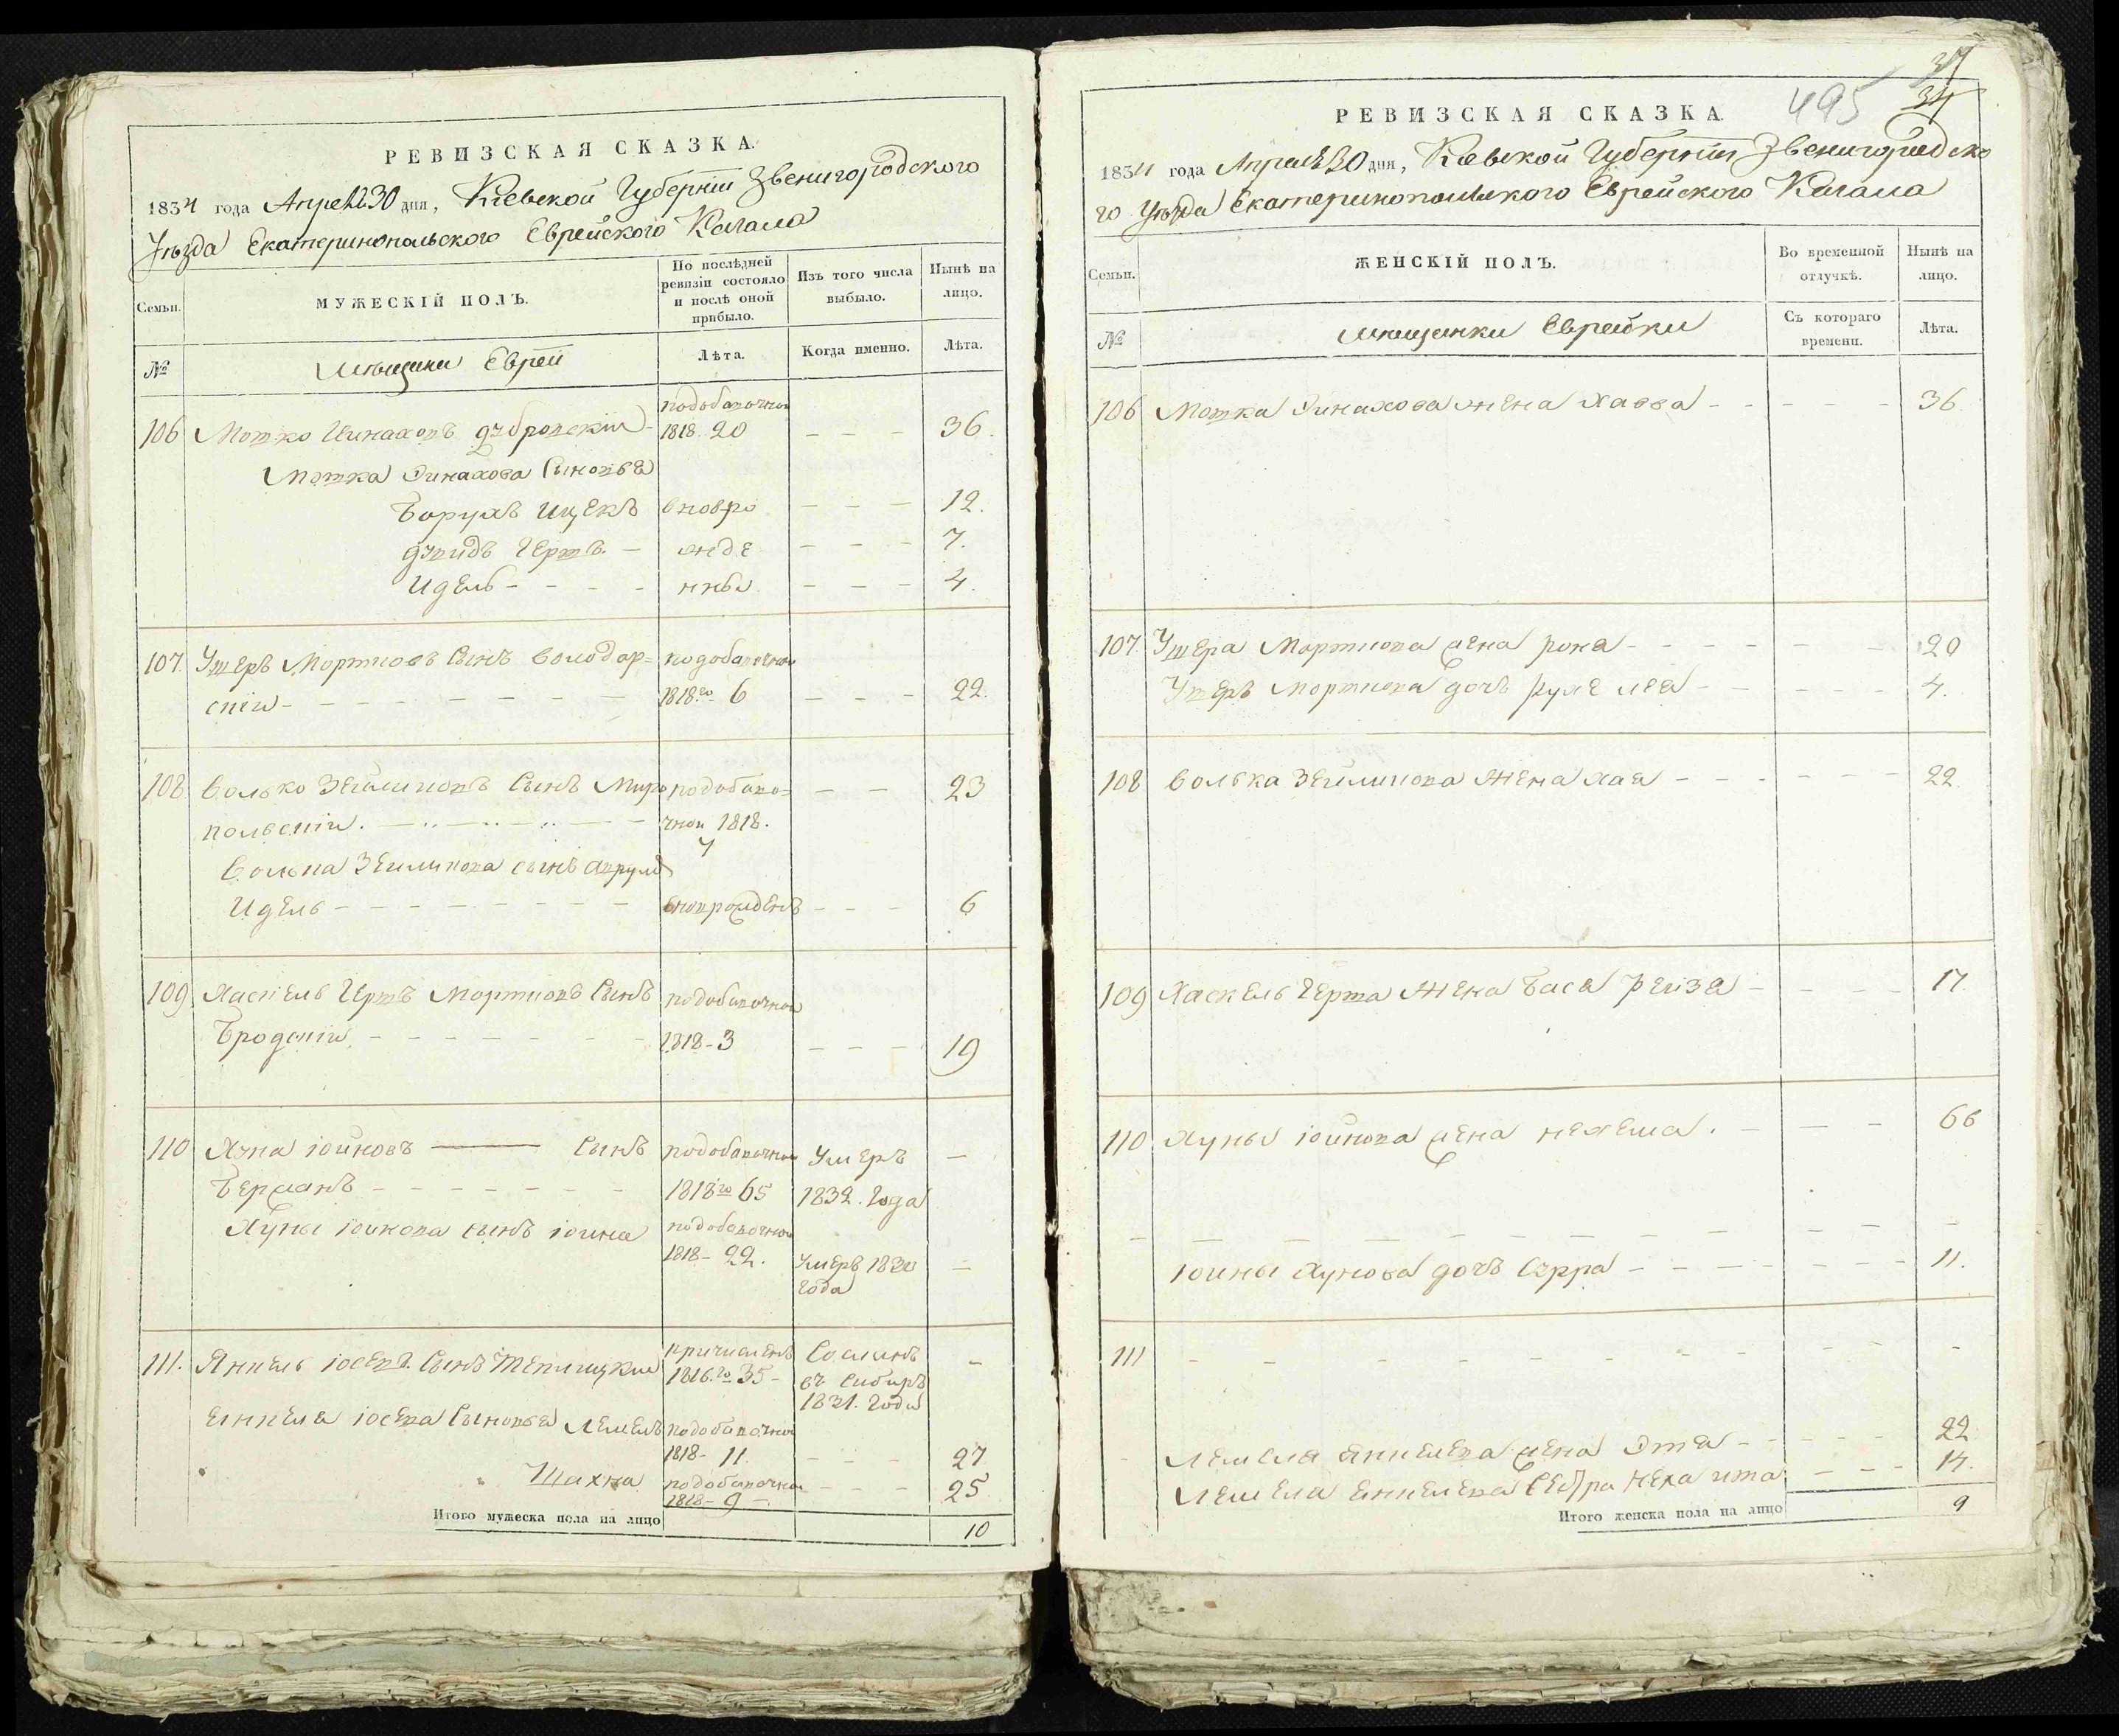 РЕВИЗСКАЯ СКАЗКА.
1834 года Апреля 30 дня, Кіевской Губерніи Звенигородского
Уѣзда Екатеринопольского Еврейского Кагала
Семьи.
МУЖЕСКІЙ ПОЛЪ.
По послѣдней ревизіи состояло и послѣ оной прибыло.
Изъ того числа выбыло.
Нынѣ на лицо.
№
Мѣщани Евреи
Лѣта.
Когда именно.
Лѣта.
106 Мошко Иинаховъ Дубровскій 1818. 20 — — — 36.
Мошка Эинахова Сыновья
Борухъ Ицекъ вновро — — — 12.
Герть — жде — — — 7.
Идель — — — — нны — — — 4.
107 Ушеръ Мортковъ Сынъ Володар=
скій — — — — — — — 1818го 6 — — — 22.
108 Волько Зейликовъ Сынъ Миро — — 23
польскій. 1818.
7
Волька Зейликова сынъ
Идель — — — — — — — — вноврожденъ — — — 6
109 Хаскель Герть Мортковъ Сынъ
Бродскій — — — — — — — 1818 - 3 — — — 19
110 Хуна Іойновъ Сынъ Умеръ —
Берманъ — — — — — — 1818го 65 1832. Года
Хуны Іойнова сынъ Іойна
1818 - 22. Умеръ 1830 —
Года
111. Янкель Іосевъ Сынъ причисленъ Сосланъ —
1816.го 35 - въ Сибирь
1831. Года
Янкеля Іосева Сыновья Лемель
1818 - 11. — — — 27
Шахна
1818 - 9 — — — — 25
Итого мужеска пола на лицо 10
495
37
34
РЕВИЗСКАЯ СКАЗКА.
1834 года Апреля 30 дня, Кіевской Губерніи Звенигородско
го Уѣзда Екатеринопольского Еврейского Кагала
Семьи.
ЖЕНСКІЙ ПОЛЪ.
Во временной отлучкѣ.
Нынѣ на лицо.
№
Мѣщанки Еврейки
Съ котораго времени.
Лѣта.
106 Мошка Эинахова Жена Хавва — — — — — 36
107. УшераМорткова жена Рохля — — — — — — 20
Ушеръ Морткова дочь Рухле Лея — — — — — 4.
108 Волька Зейликова Жена Хая — — — — — — 22
109 Хаскель Герта Жена Бася Рейзя — — — — 17.
110 Хуны Іойнова жена Нехема. — — — 66
— — — — — — — — — — — —
Іойны Хунова дочь Сурра — — — — — — — 11.
111 — — — — — — — — — — —
Лемеля Янкелева жена Этя — — — — — 22
Лемеля Янкелева Сестра — — — 14.
Итого женска пола на лицо 9